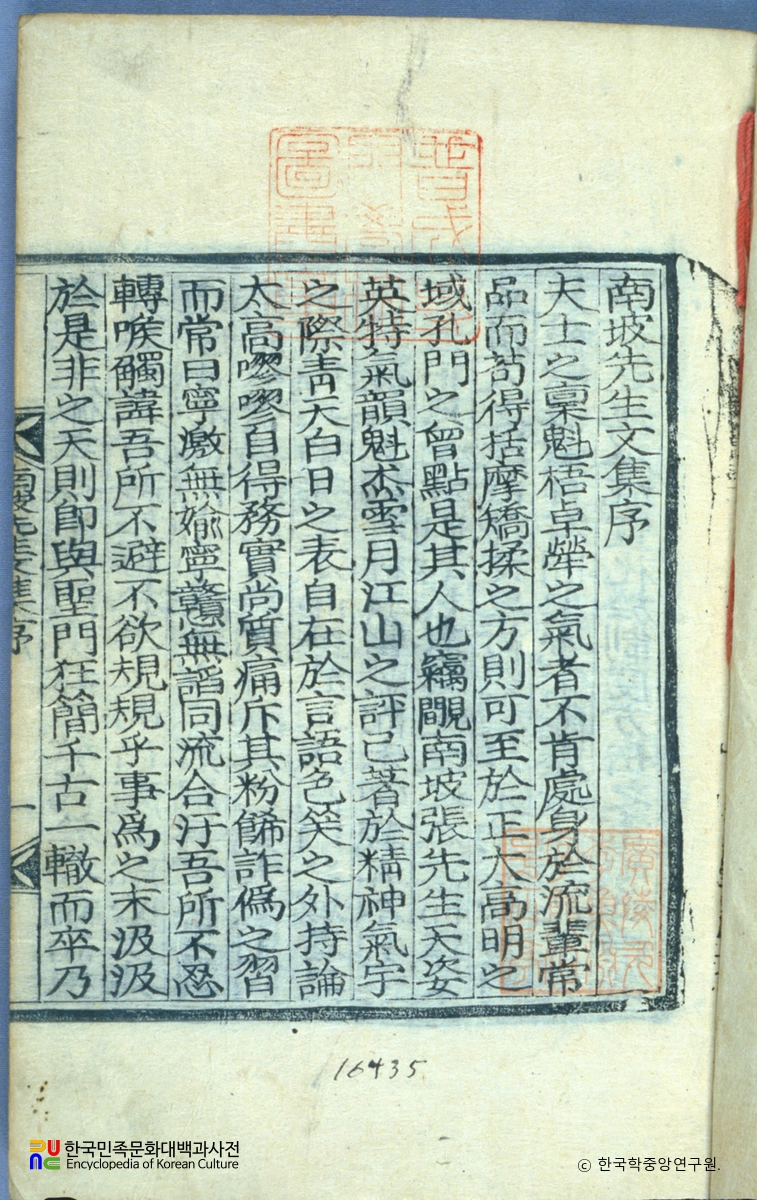 南坡先生文集序
夫士之稟魁梧卓犖之氣者不肯處身於流輩常
品而苟得括摩矯揉之方則可至於正大高明之
域孔門之曾點是其人也竊覵南坡張先生天姿
英特氣韻魁杰雪月江山之評已著於精神氣宇
之際靑天白日之表自在於言語色笑之外持論
太高嘐嘐自得務實尙質痛斥其粉餙詐僞之習
而常曰寧激無婾寧戇無謟同流合汙吾所不忍
轉喉觸諱吾所不避不欲規規乎事爲之末汲汲
於是非之天則卽與聖門狂簡千古一轍而卒乃
南坡先生文集序
一
16435
한국민족문화대백과사전
Encyclopedia of Korean Culture
ⓒ 한국학중앙연구원.